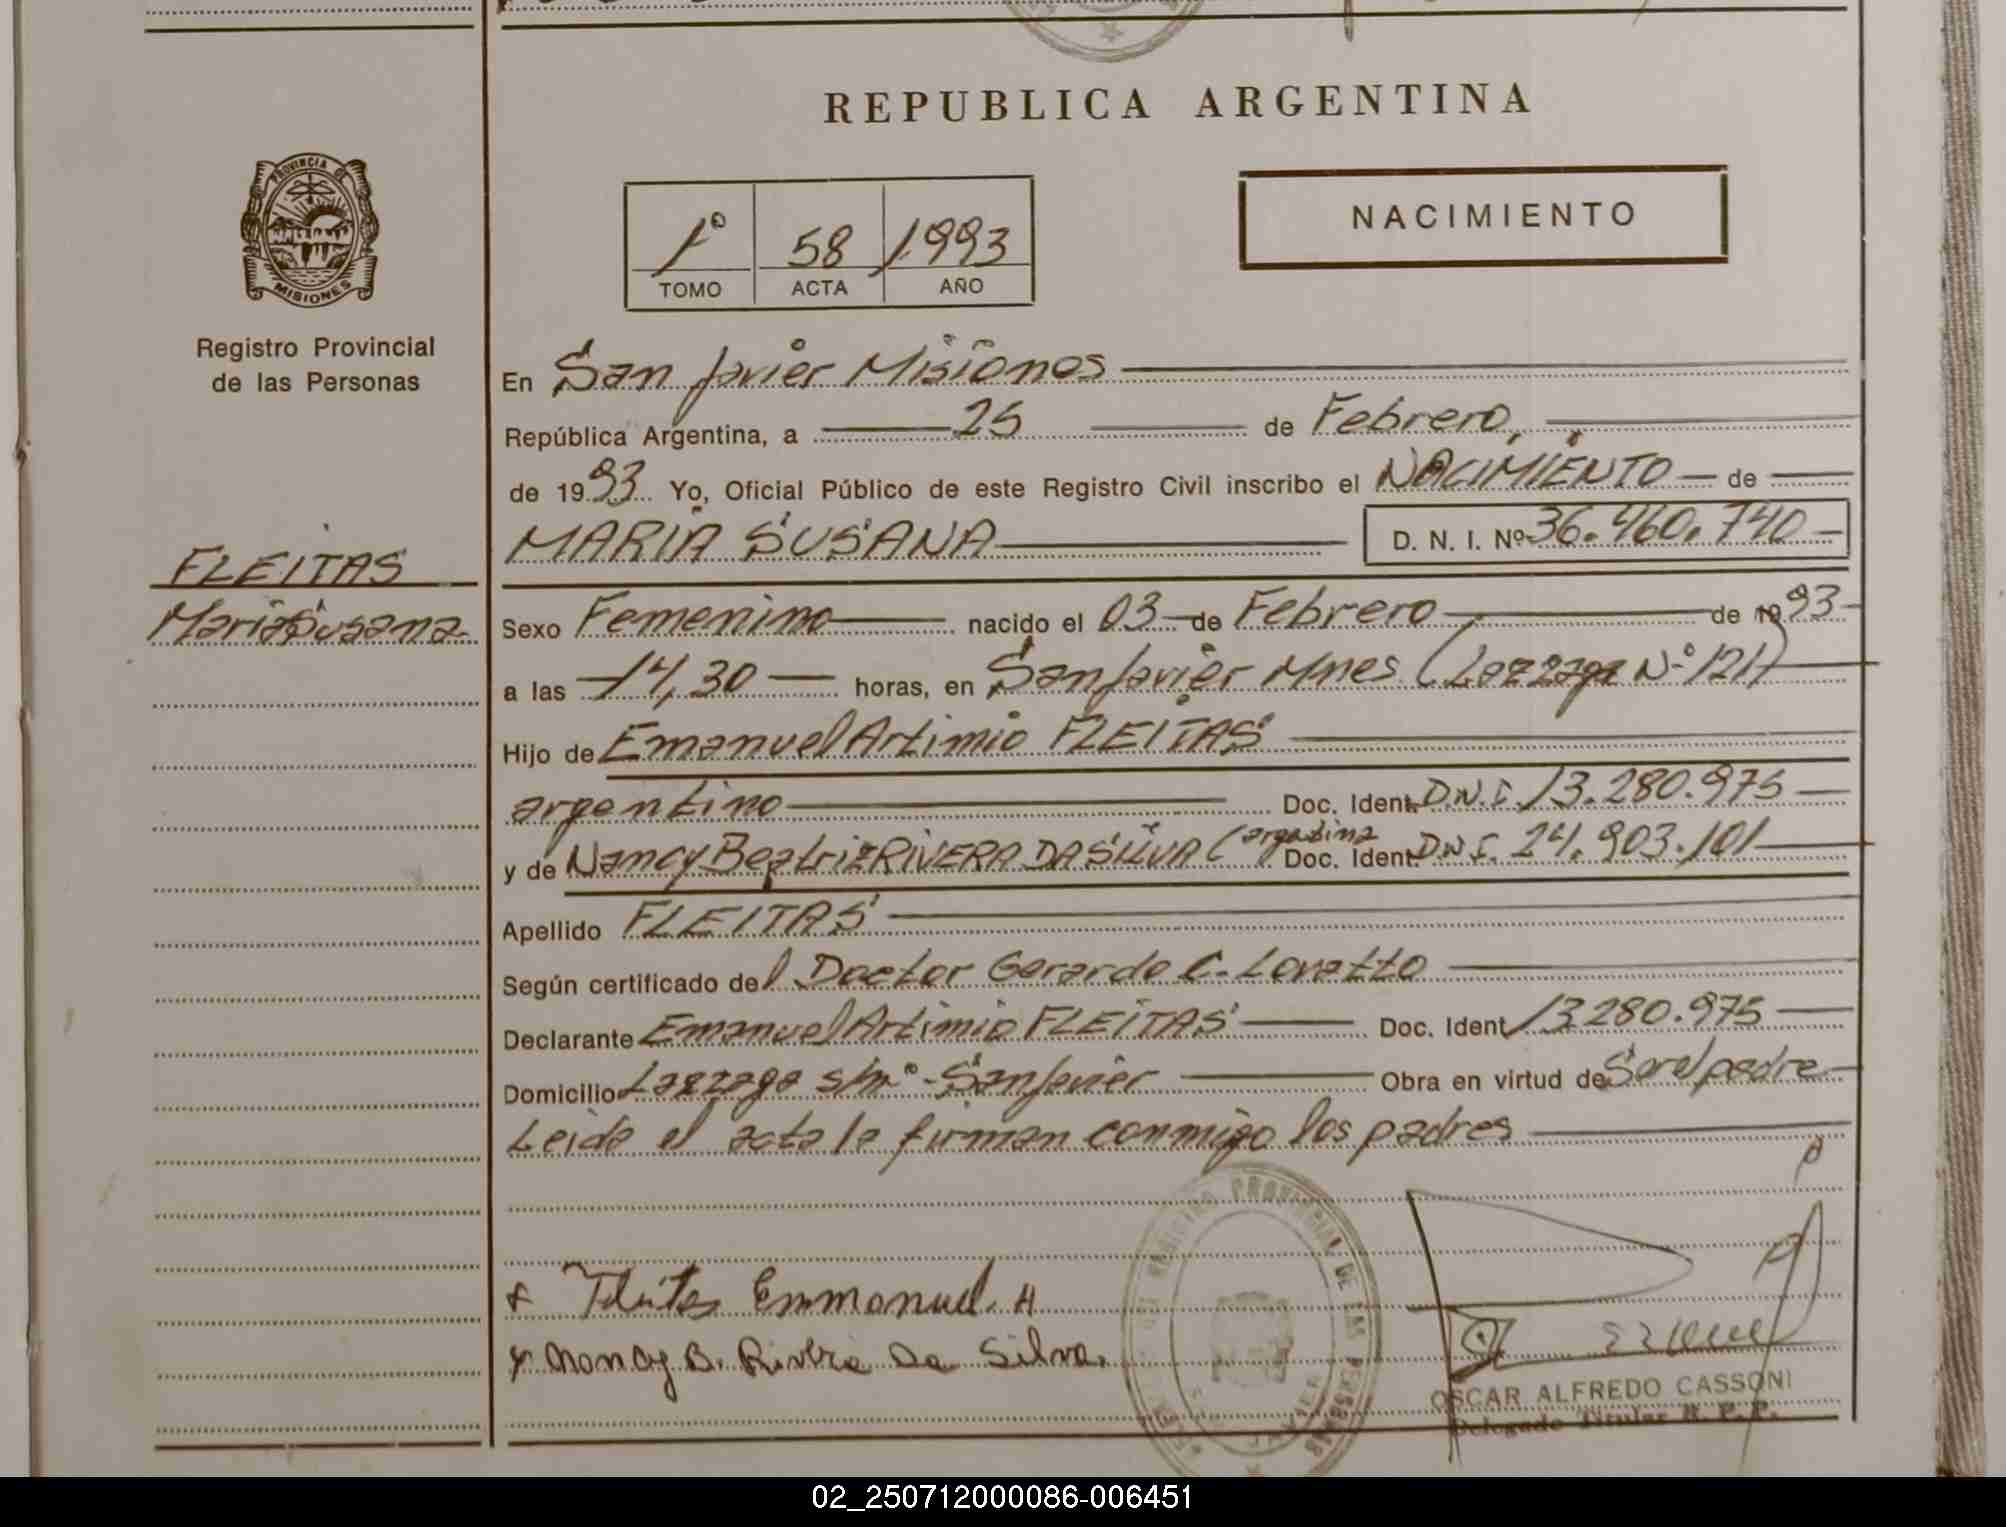 REPUBLICA ARGENTINA
PROVINCIA DE
MISIONES
1º 58 1993
TOMO ACTA AÑO
NACIMIENTO
Registro Provincial
de las Personas
En San Javier Misiones
República Argentina, a 25 de Febrero,
de 1993 Yo, Oficial Público de este Registro Civil inscribo el NACIMIENTO de
MARIA SUSANA D. N. I. Nº 36.460.740
FLEITAS
Maria Susana
Sexo Femenino nacido el 03 de Febrero de 1993
a las 14,30 horas, en San Javier Mnes (Lazzaga Nº 121)
Hijo de Emanuel Artimio FLEITAS
argentino Doc. Ident. D.N.I. 13.280.975
y de Nancy Beatriz RIVERA DA SILVA (argentina Doc. Ident. D.N.I. 24.903.101
Apellido FLEITAS
Según certificado del Doctor Gerardo C. Lovatto
Declarante Emanuel Artimio FLEITAS Doc. Ident. 13.280.975
Domicilio Lazzaga s/nº - San Javier Obra en virtud de Ser el padre
Leida el acta la firman conmigo los padres
Emmanuel. A
Nancy B. Rivera Da Silva.
REGISTRO PROVINCIAL DE LAS PERSONAS
OSCAR ALFREDO CASSONI
Delegado Titular R. P. P.
02_250712000086-006451